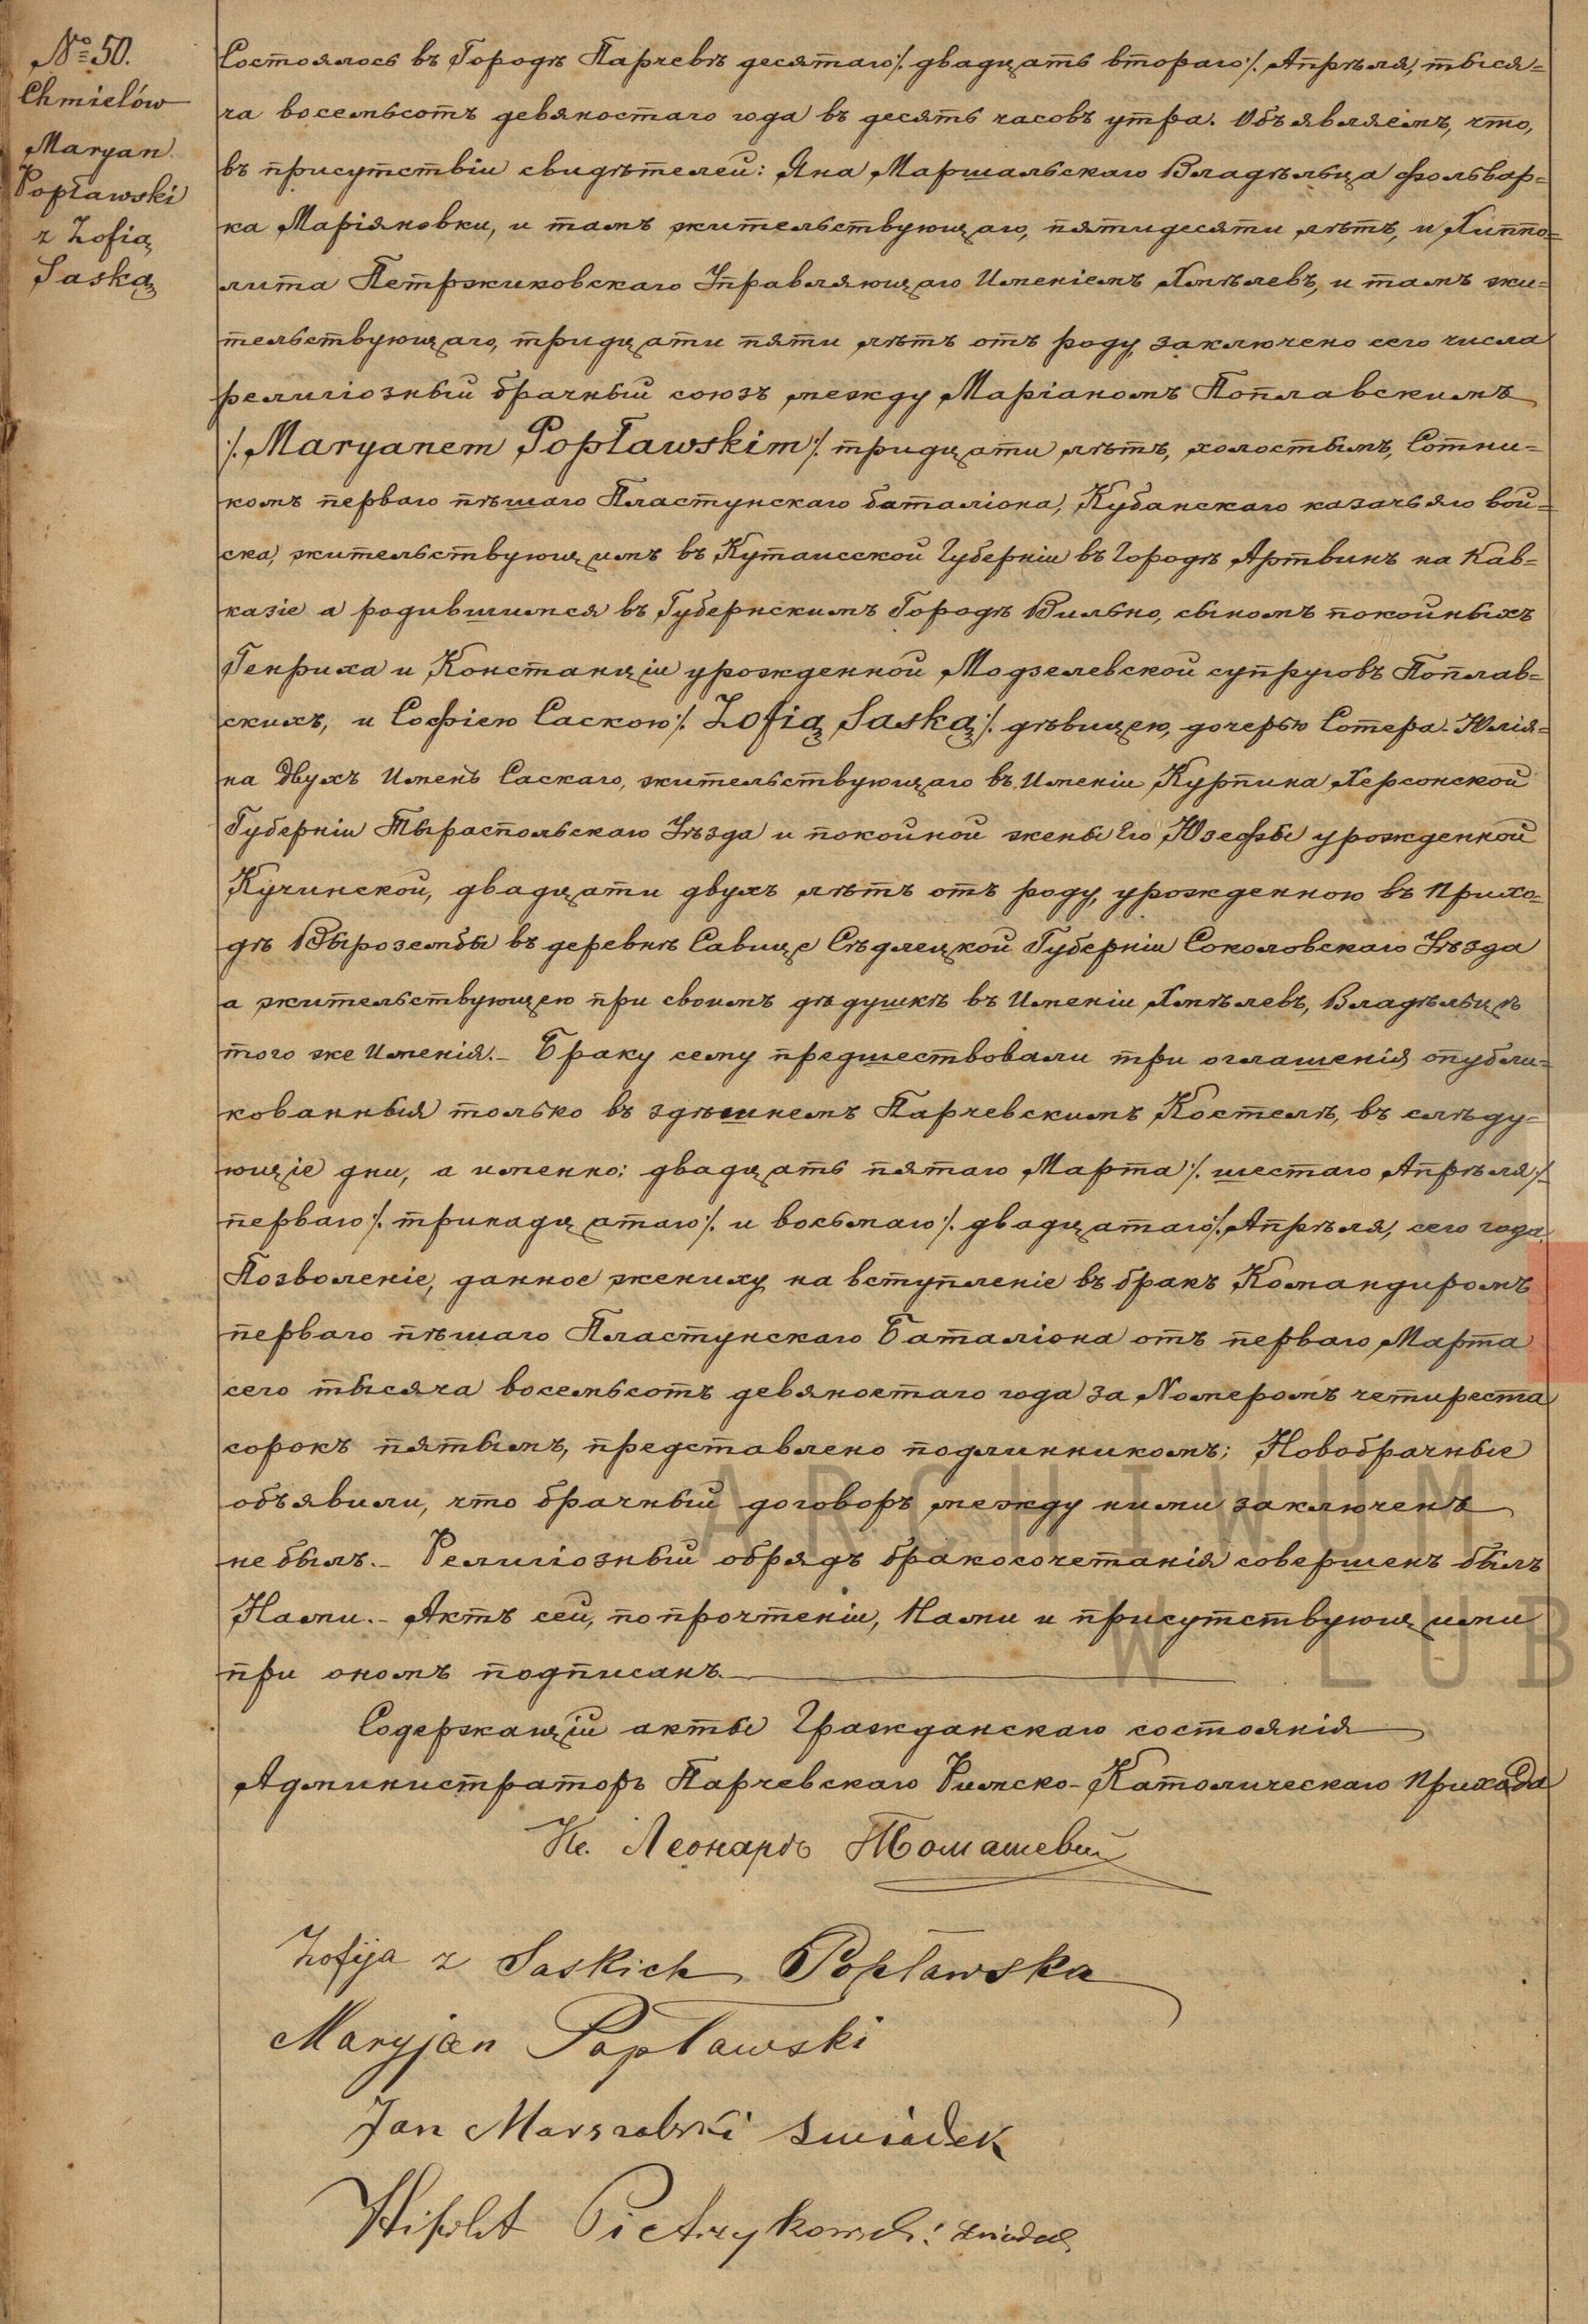 № 50.
Chmielów
Maryan
Popławski
z Zofią
Saską
Состоялось въ Городѣ Парчевѣ десятаго /:двадцать втораго:/ Апрѣля, тыся=
ча восемьсотъ девяностаго года въ десять часовъ утра. Объявляемъ, что,
въ присутствіи свидѣтелей: Яна Маршальскаго Владѣльца фольвар=
ка Маріяновки, и тамъ жительствующаго, пятидесяти лѣтъ, и Хиппо=
лита Петржиковскаго Управляющаго Имѣніемъ Хмѣлевъ, и тамъ жи=
тельствующаго, тридцати пяти лѣтъ отъ роду, заключено сего числа
религіозный брачный союзъ между Маріаномъ Поплавскимъ
/:Maryanem Popławskim:/ тридцати лѣтъ, холостымъ, Сотни=
комъ перваго пѣшаго Пластунскаго баталіона, Кубанскаго казачьяго вой=
ска, жительствующимъ въ Кутаисской Губерніи въ Городѣ Артвинъ на Кав=
казіе а родившимся въ Губернскимъ Городѣ Вильно, сыномъ покойныхъ
Генриха и Констанціи урожденной Модзелевской супруговъ Поплав=
скихъ, и Софіею Саскою /:Zofią Saską:/ дѣвицею, дочерью Сотера-Юлія=
на двухъ Именъ Саскаго, жительствующаго въ Имѣніи Курпина Херсонской
Губерніи Тыраспольскаго Уѣзда и покойной жены Его Юзефы урожденной
Кучинской, двадцати двухъ лѣтъ отъ роду, урожденною въ Прихо=
дѣ Вырозембы въ деревнѣ Савице Сѣдлецкой Губерніи Соколовскаго Уѣзда
а жительствующею при своимъ дѣдушкѣ въ Имѣніи Хмѣлевъ, Владѣльцѣ
того же Имѣнія.- Браку сему предшествовали три оглашенія опубли=
кованныя только въ здѣшнемъ Парчевскимъ Костелѣ, въ слѣду=
ющіе дни, а именно: двадцать пятаго Марта /:шестаго Апрѣля:/
перваго /:тринадцатаго:/ и восьмаго /:двадцатаго:/ Апрѣля, сего года.
Позволеніе, данное жениху на вступленіе въ бракъ Командиромъ
перваго пѣшаго Пластунскаго Баталіона отъ перваго Марта
сего тысяча восемьсотъ девяностаго года за Номеромъ четиреста
сорокъ пятымъ, представлено подлинникомъ; Новобрачные
объявили, что брачный договоръ между ними заключенъ
не былъ.- Религіозный обрядъ бракосочетанія совершенъ былъ
Нами.- Актъ сей, по прочтеніи, Нами и присутствующими
при ономъ подписанъ.
Содержащій акты Гражданскаго состоянія
Администраторъ Парчевскаго Римско-Католическаго Прихода
Кс. Леонардъ Томашевич
Zofija z Saskich Popławska
Maryjan Popławski
Jan Marszalski swiadek
Hipolit Pietrzykowski swiadek
ARCHIWUM
W LUB